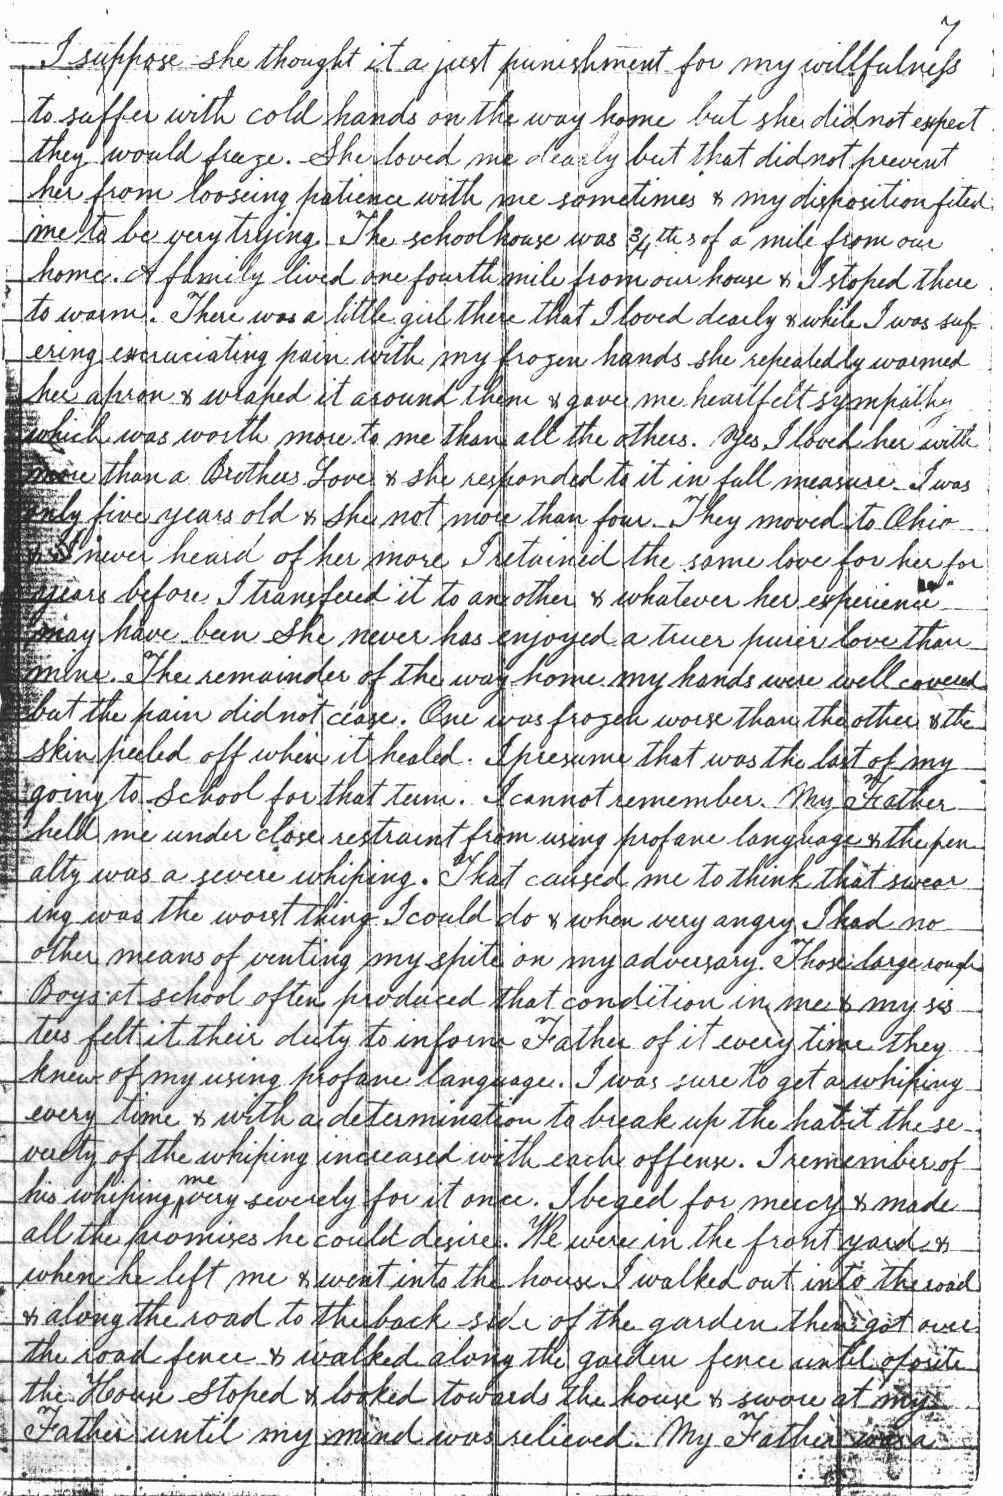 7
I suppose she thought it a just punishment for my willfulness
to suffer with cold hands on the way home but she did not expect
they would freeze. She loved me dearly but that did not prevent
her from looseing patience with me sometimes & my disposition fited
me to be very trying. The schoolhouse was 3/4ths of a mile from our
home. A family lived one fourth mile from our house & I stoped there
to warm. There was a little girl there that I loved dearly & while I was suf-
ering excruciating pain with my frozen hands she repeatedly warmed
her apron & wraped it around them & gave me heartfelt sympathy
which was worth more to me than all the others. Yes I loved her with
more than a Brothers Love & she responded to it in full measure. I was
only five years old & she not more than four. They moved to Ohio
& I never heard of her more I retained the same love for her for
years before I transfered it to another & whatever her experience
may have been she never has enjoyed a truer purer love than
mine. The remainder of the way home my hands were well covered
but the pain did not cease. One was frozen worse than the other & the
skin peeled off when it healed. I presume that was the last of my
going to School for that term. I cannot remember. My Father
held me under close restraint from using profane language & the pen
alty was a severe whiping. That caused me to think that swear
ing was the worst thing I could do & when very angry I had no
other means of venting my spite on my adversary. Those large rough
Boys at school often produced that condition in me & my sis
ters felt it their duty to inform Father of it every time they
knew of my using profane language. I was sure to get a whiping
every time & with a determination to break up the habit the se
verety of the whiping increased with each offense. I remember of
his whiping me very severely for it once. I beged for mercy & made
all the promises he could desire. We were in the front yard &
when he left me & went into the house I walked out into the road
& along the road to the back side of the garden then got over
the road fence & walked along the garden fence until oposite
the House Stoped & looked towards the house & swore at my
Father until my mind was relieved. My Father was a